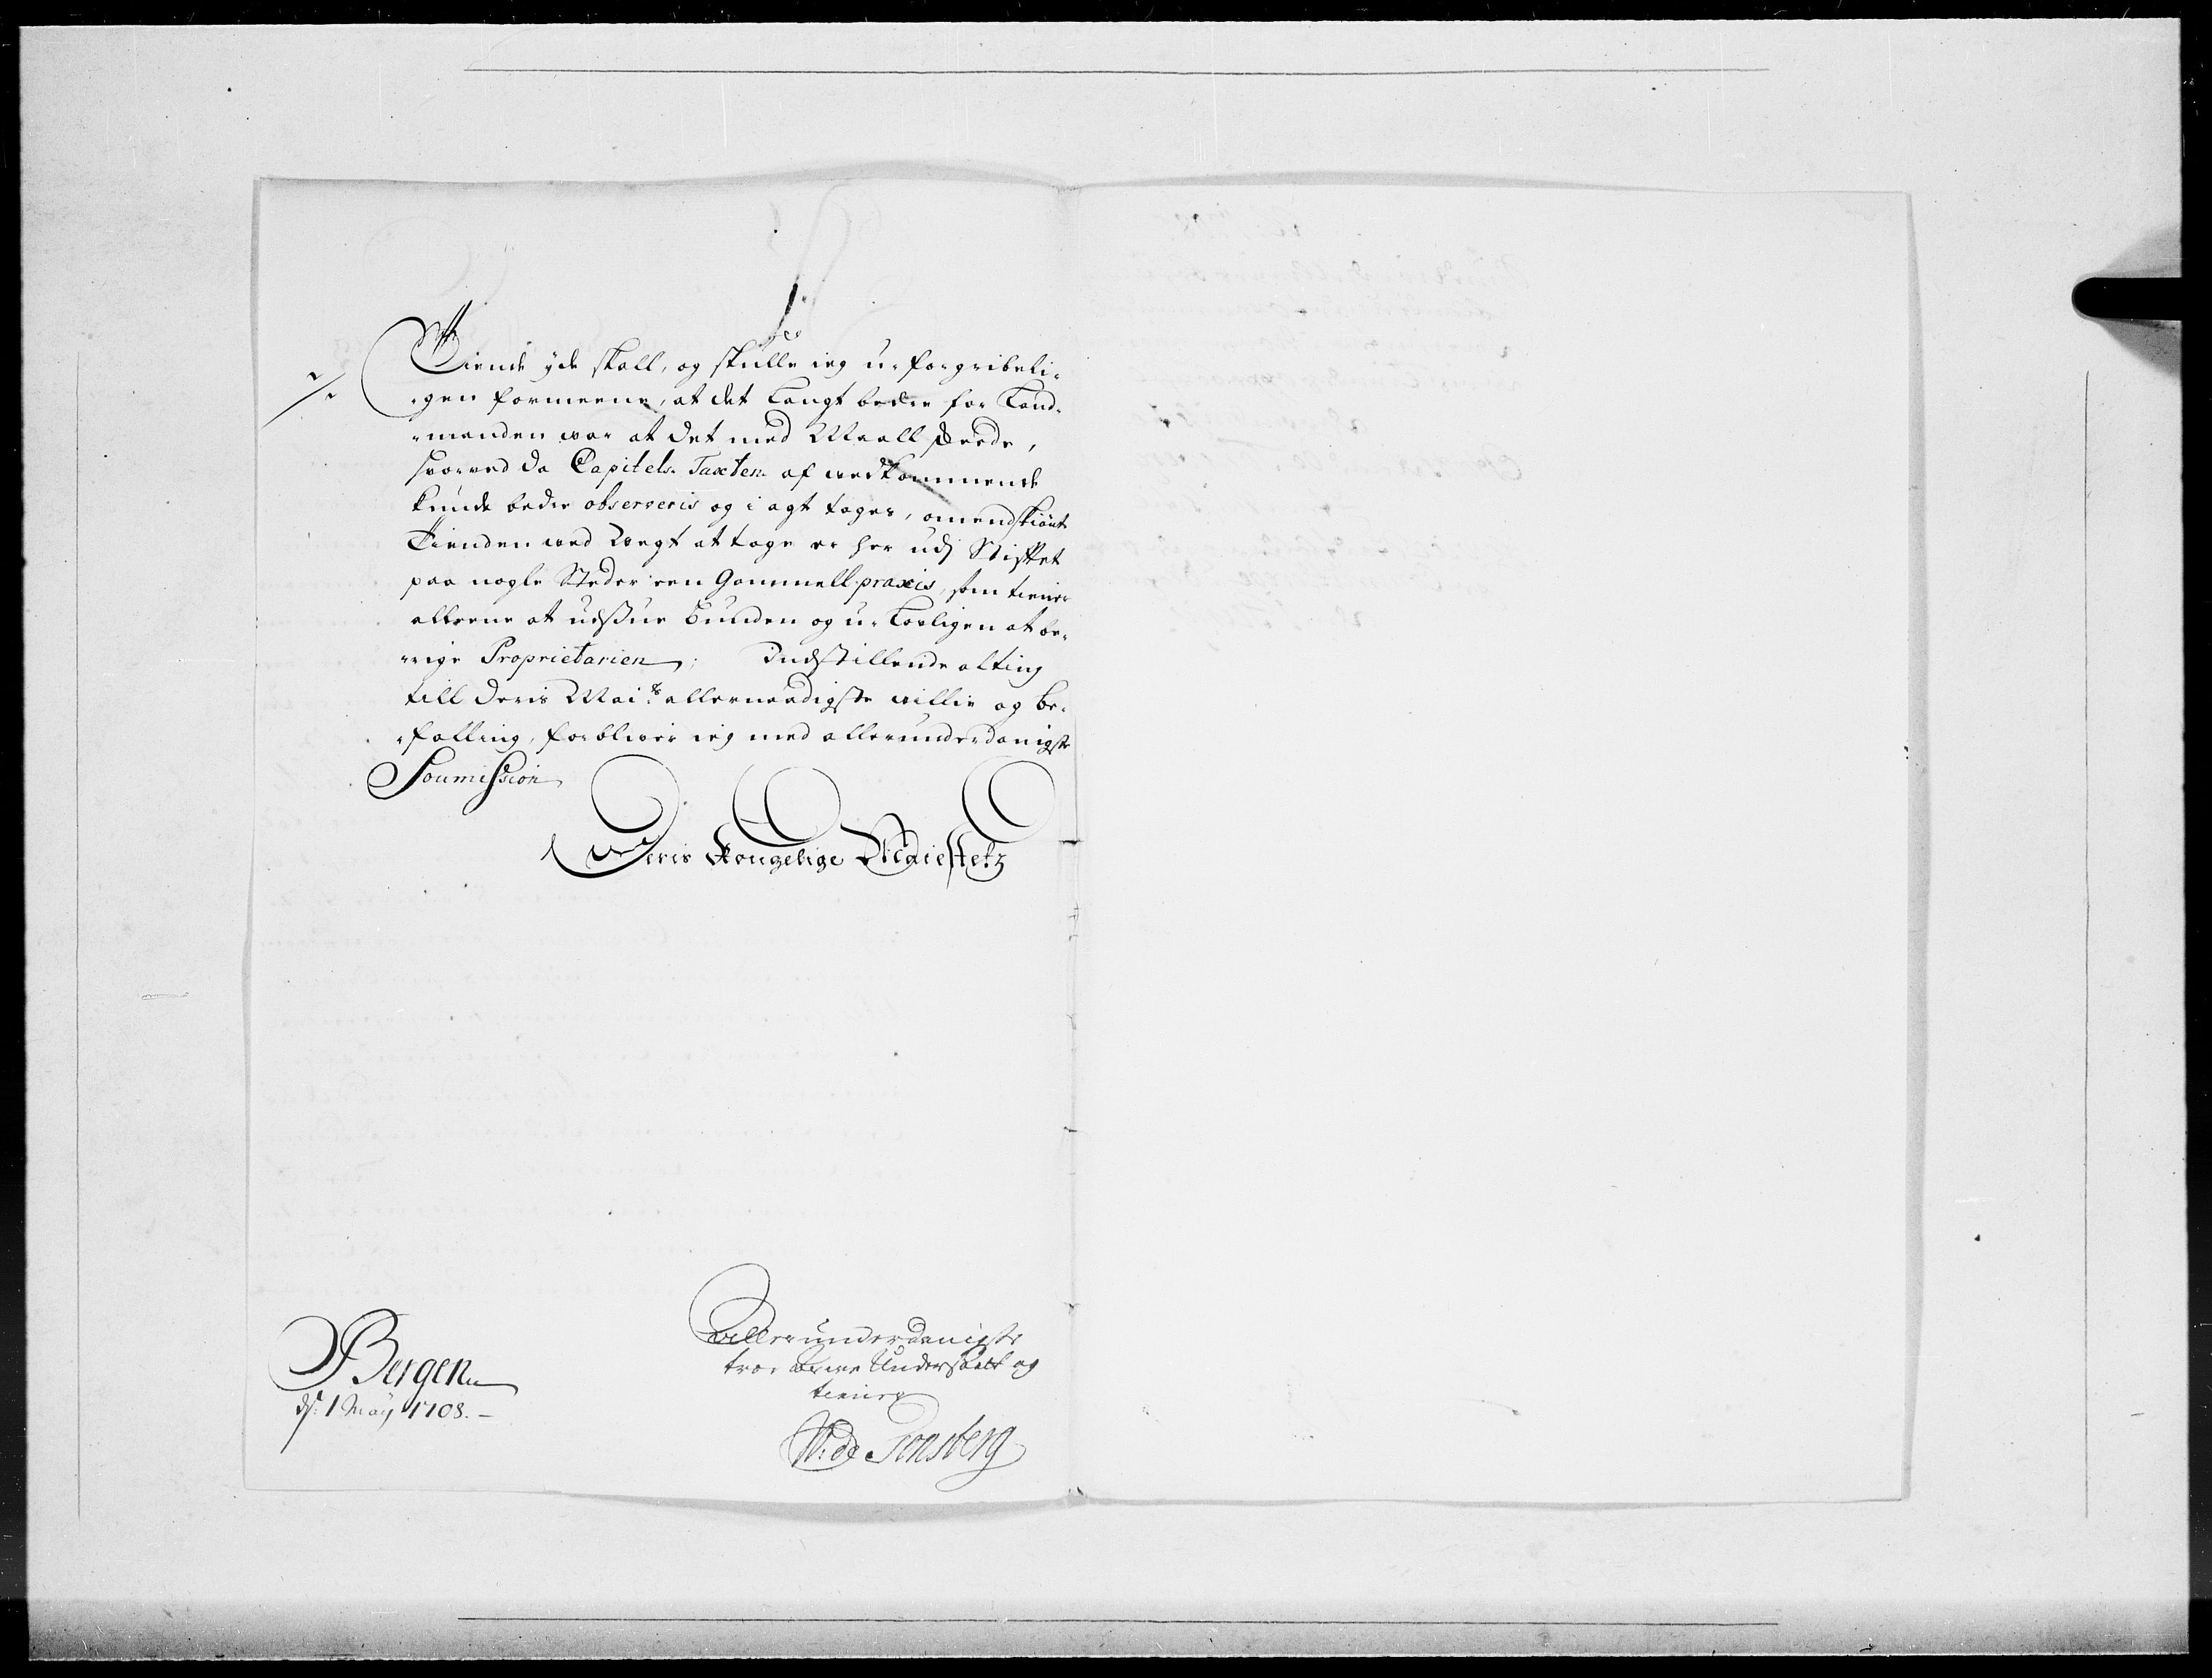 Tiende yde skall, og skulle ieg u-forgribeli-
-gen formeene, at det Langt bedre for Land-
-manden war at det med Maall skeede,
hvorved da Capitels Taxten af wedkommende
kunde bedre observeris og i agt tages, omendskiønt
Tienden wed Wegt at tage er her udj Stiftet
paa nogle Steder een Gammell praxis, som tiener
alleene at udssue Bunden og u-Lovligen at be-
-rige Proprietarien; Indstillende alting
till Deris Mai.ts allernaadigste willie og be-
-falling, forbliver ieg med allerunderdanigste
Soumission
Deris Kongelige Maiestetz
Allerunderdanigste
troe Arwe Undersaatt og
tienere
W: de Tonsberg
Bergen
ds: 1 May 1708.